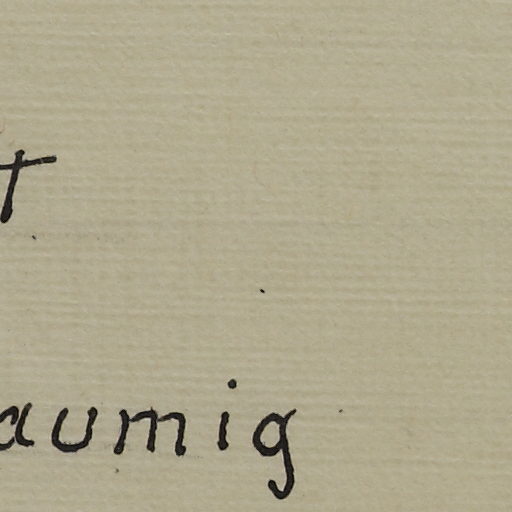 t
aumig